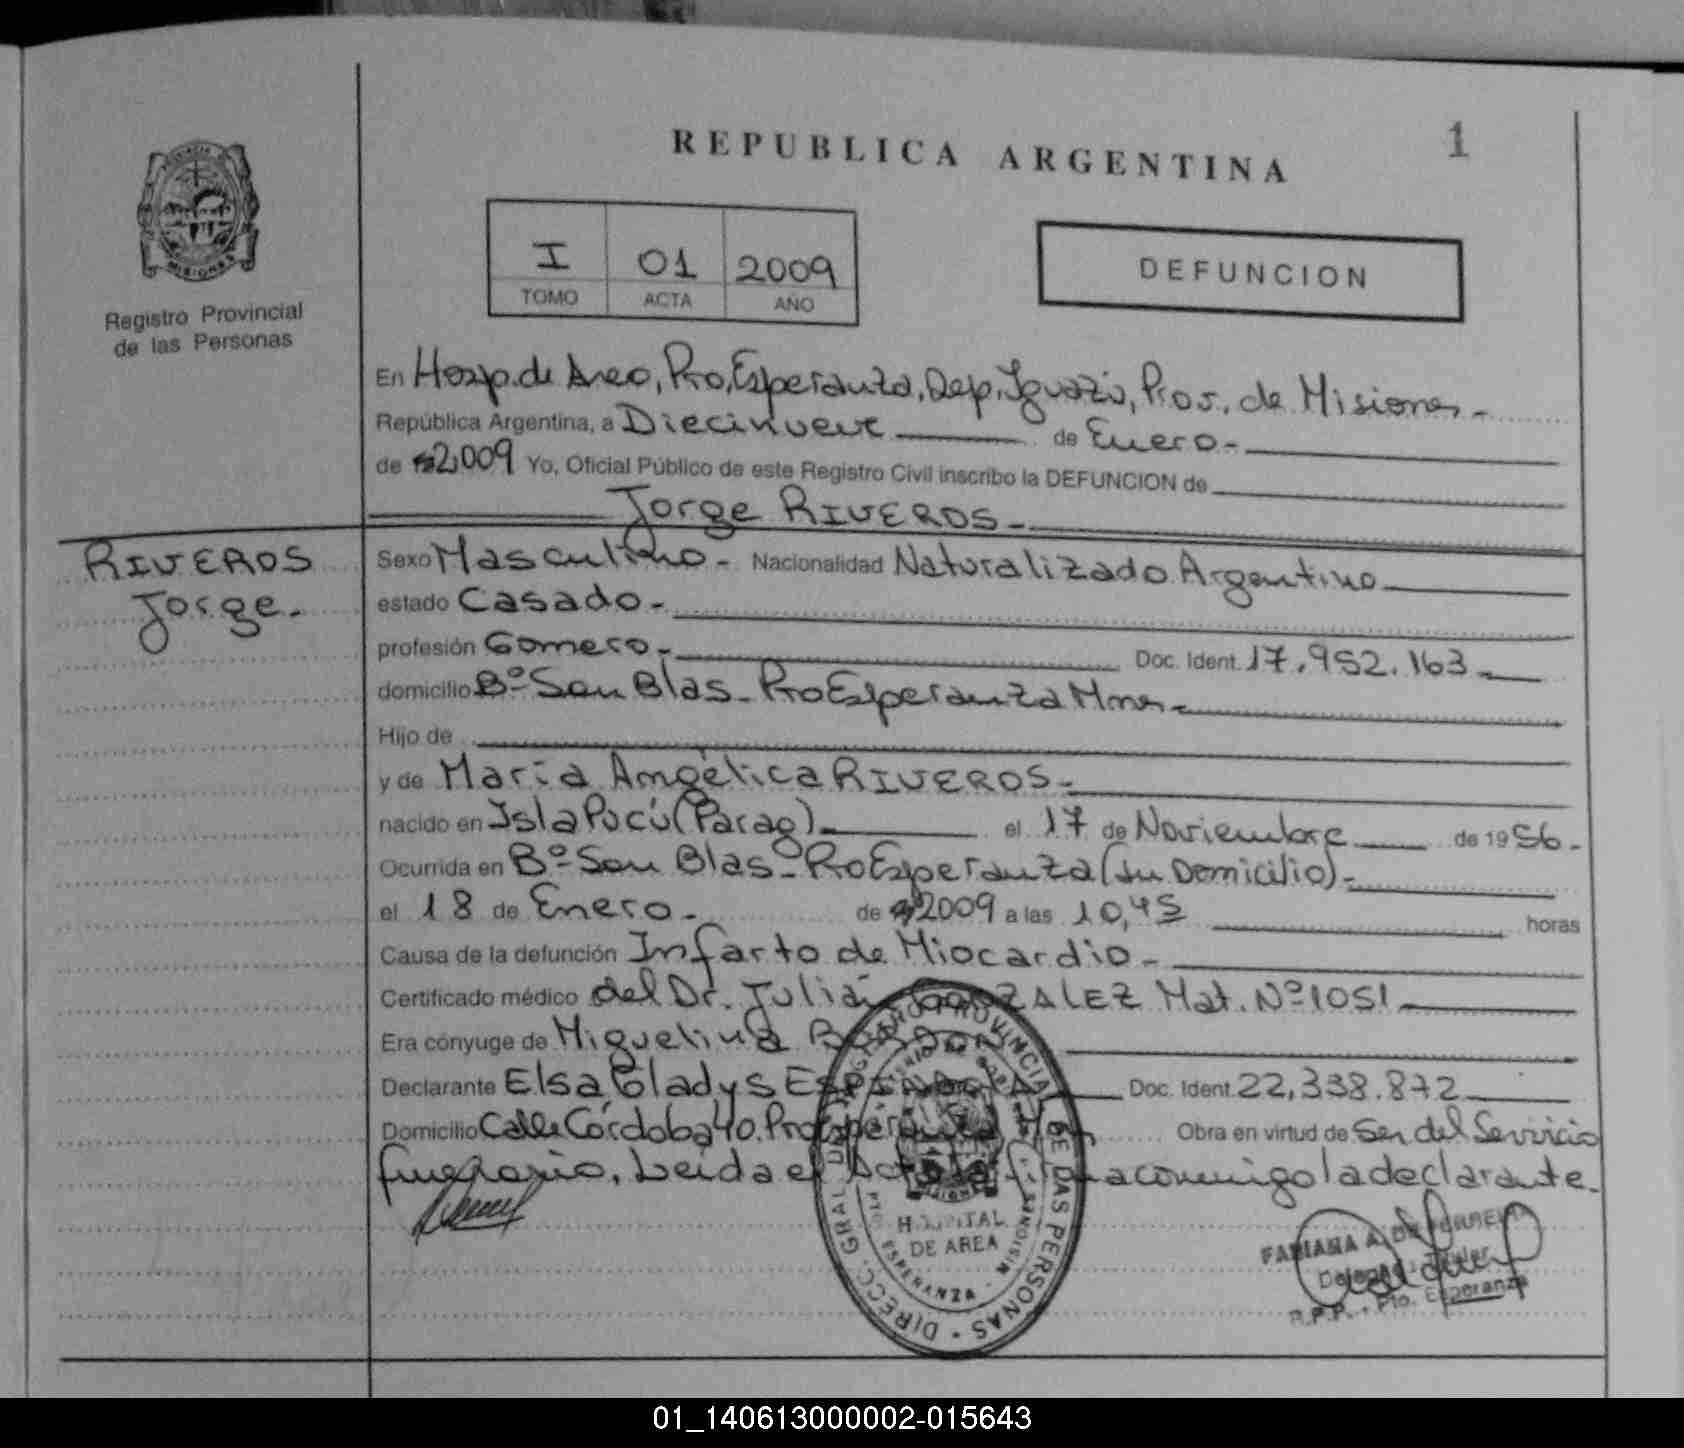 REPUBLICA ARGENTINA
1
PROVINCIA DE
MISIONES
Registro Provincial
de las Personas
I 01 2009
TOMO ACTA AÑO
DEFUNCION
En Hosp. de Area, Pto, Esperanza, Dep. Iguazú, Prov. de Misiones -
República Argentina, a Diecinueve de Enero -
de 2,009 Yo, Oficial Público de este Registro Civil inscribo la DEFUNCION de
Jorge RIVEROS -
RIVEROS
Jorge.
Sexo Masculino - Nacionalidad Naturalizado Argentino
estado Casado -
profesión Gomero - Doc. Ident. 17.952.163
domicilio Bº San Blas - Pto Esperanza Mnes -
Hijo de
y de María Angélica RIVEROS -
nacido en Isla Pucú (Parag) el 17 de Noviembre de 1956 -
Ocurrida en Bº San Blas - Pto Esperanza (Su Domicilio) -
el 18 de Enero - de 2009 a las 10,45 horas
Causa de la defunción Infarto de Miocardio -
Certificado médico del Dr. Julián GONZALEZ Mat. Nº 1051
Era cónyuge de Miguelina
Declarante Elsa Gladys ESPINDOLA Doc. Ident. 22,338.872
Domicilio Calle Córdoba 40. Pto Esperanza Obra en virtud de Ser del Servicio
funerario. Leída el Acta la firma conmigo la declarante.
DIRECC. GRAL. DEL REGISTRO PROVINCIAL DE LAS PERSONAS
HOSPITAL
DE AREA
PTO. ESPERANZA - MISIONES
FABIANA A.
Delegada Titular
R.P.P. - Pto. Esperanza
01_140613000002-015643